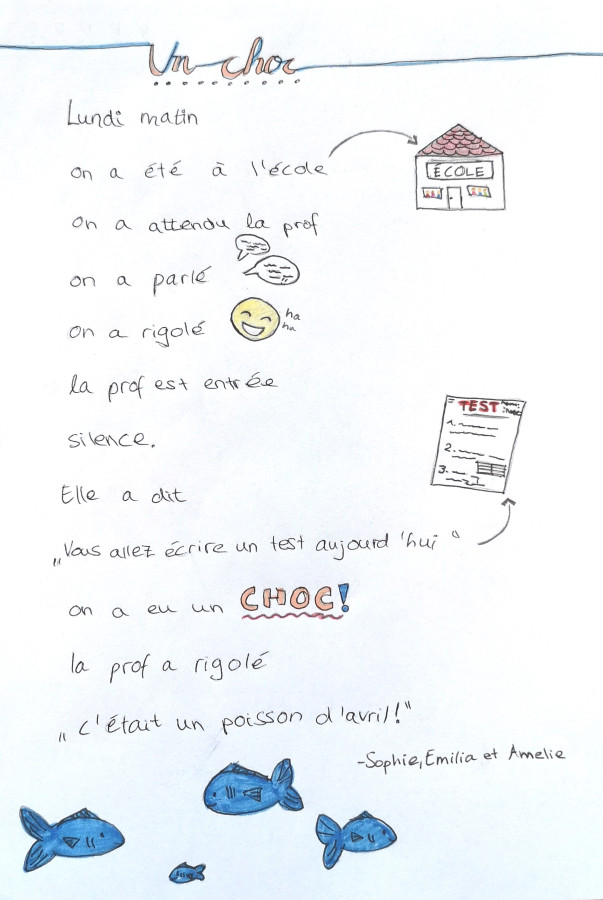 Un choc
Lundi matin
on a été à l'école
ÉCOLE
on a attendu la prof
on a parlé
on a rigolé
ha
ha
la prof est entrée
silence.
TEST
1.
2.
3.
Elle a dit
„Vous allez écrire un test aujourd'hui“
on a eu un CHOC!
la prof a rigolé
„c'était un poisson d'avril!“
-Sophie, Emilia et Amelie